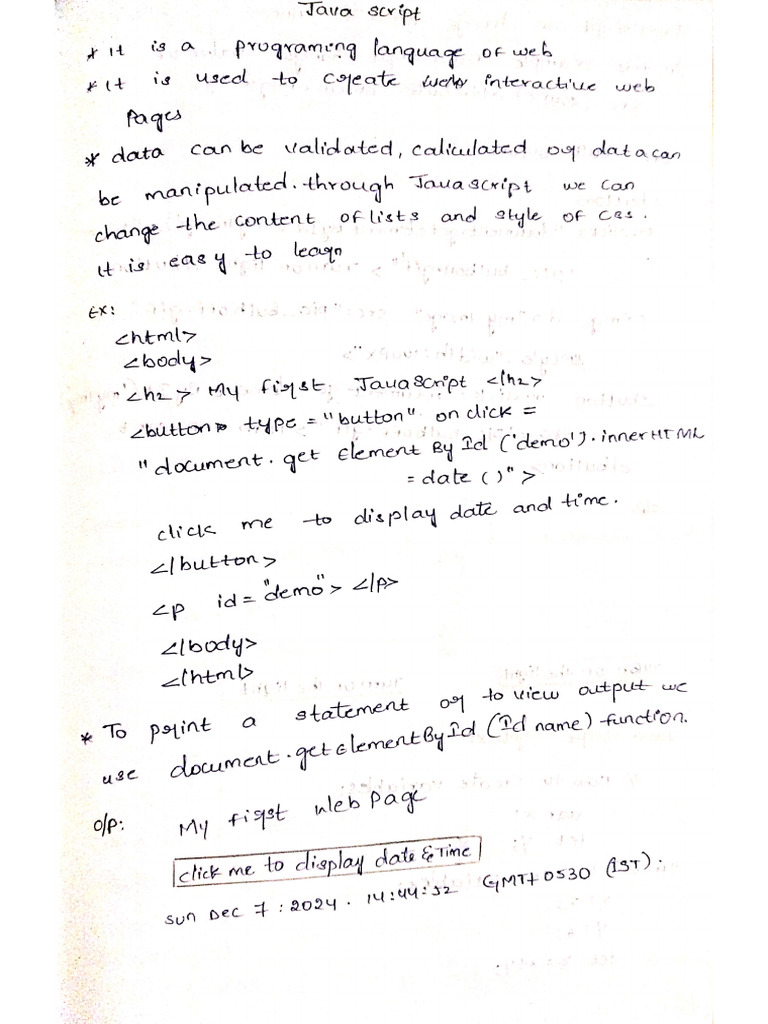 Java script
* it is a programing language of web
* It is used to create interactive web
Pages
* data can be validated, caliculated or data can
be manipulated. through Java script we can
change the content of lists and style of css.
It is easy to learn
Ex:
<html>
<body>
<h2> My first JavaScript </h2>
<button> type = "button" on click =
"document. get Element By Id ('demo'). inner HTML
= date ()">
click me to display date and time.
</button>
<p id = "demo"> </p>
</body>
</html>
* To print a statement or to view output we
use document.getElementById (Id name) function.
o/p: My first Web Page
click me to display date & Time
sun Dec 7 : 2024 . 14:44:52 GMT+0530 (IST):